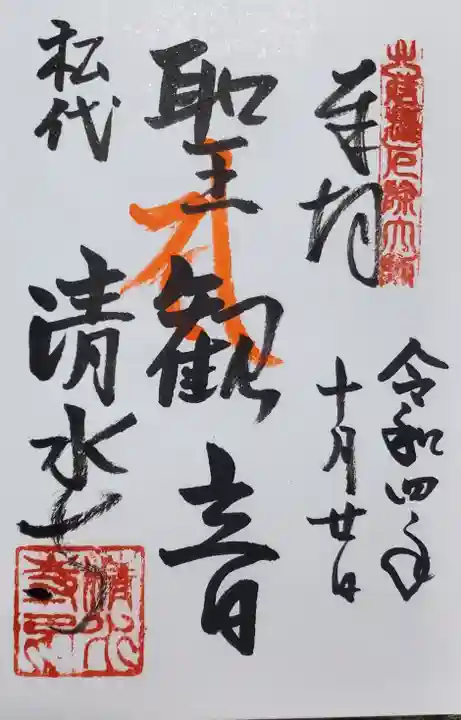 奉拝
令和四年
十月廿日
聖観音
松代
清水寺